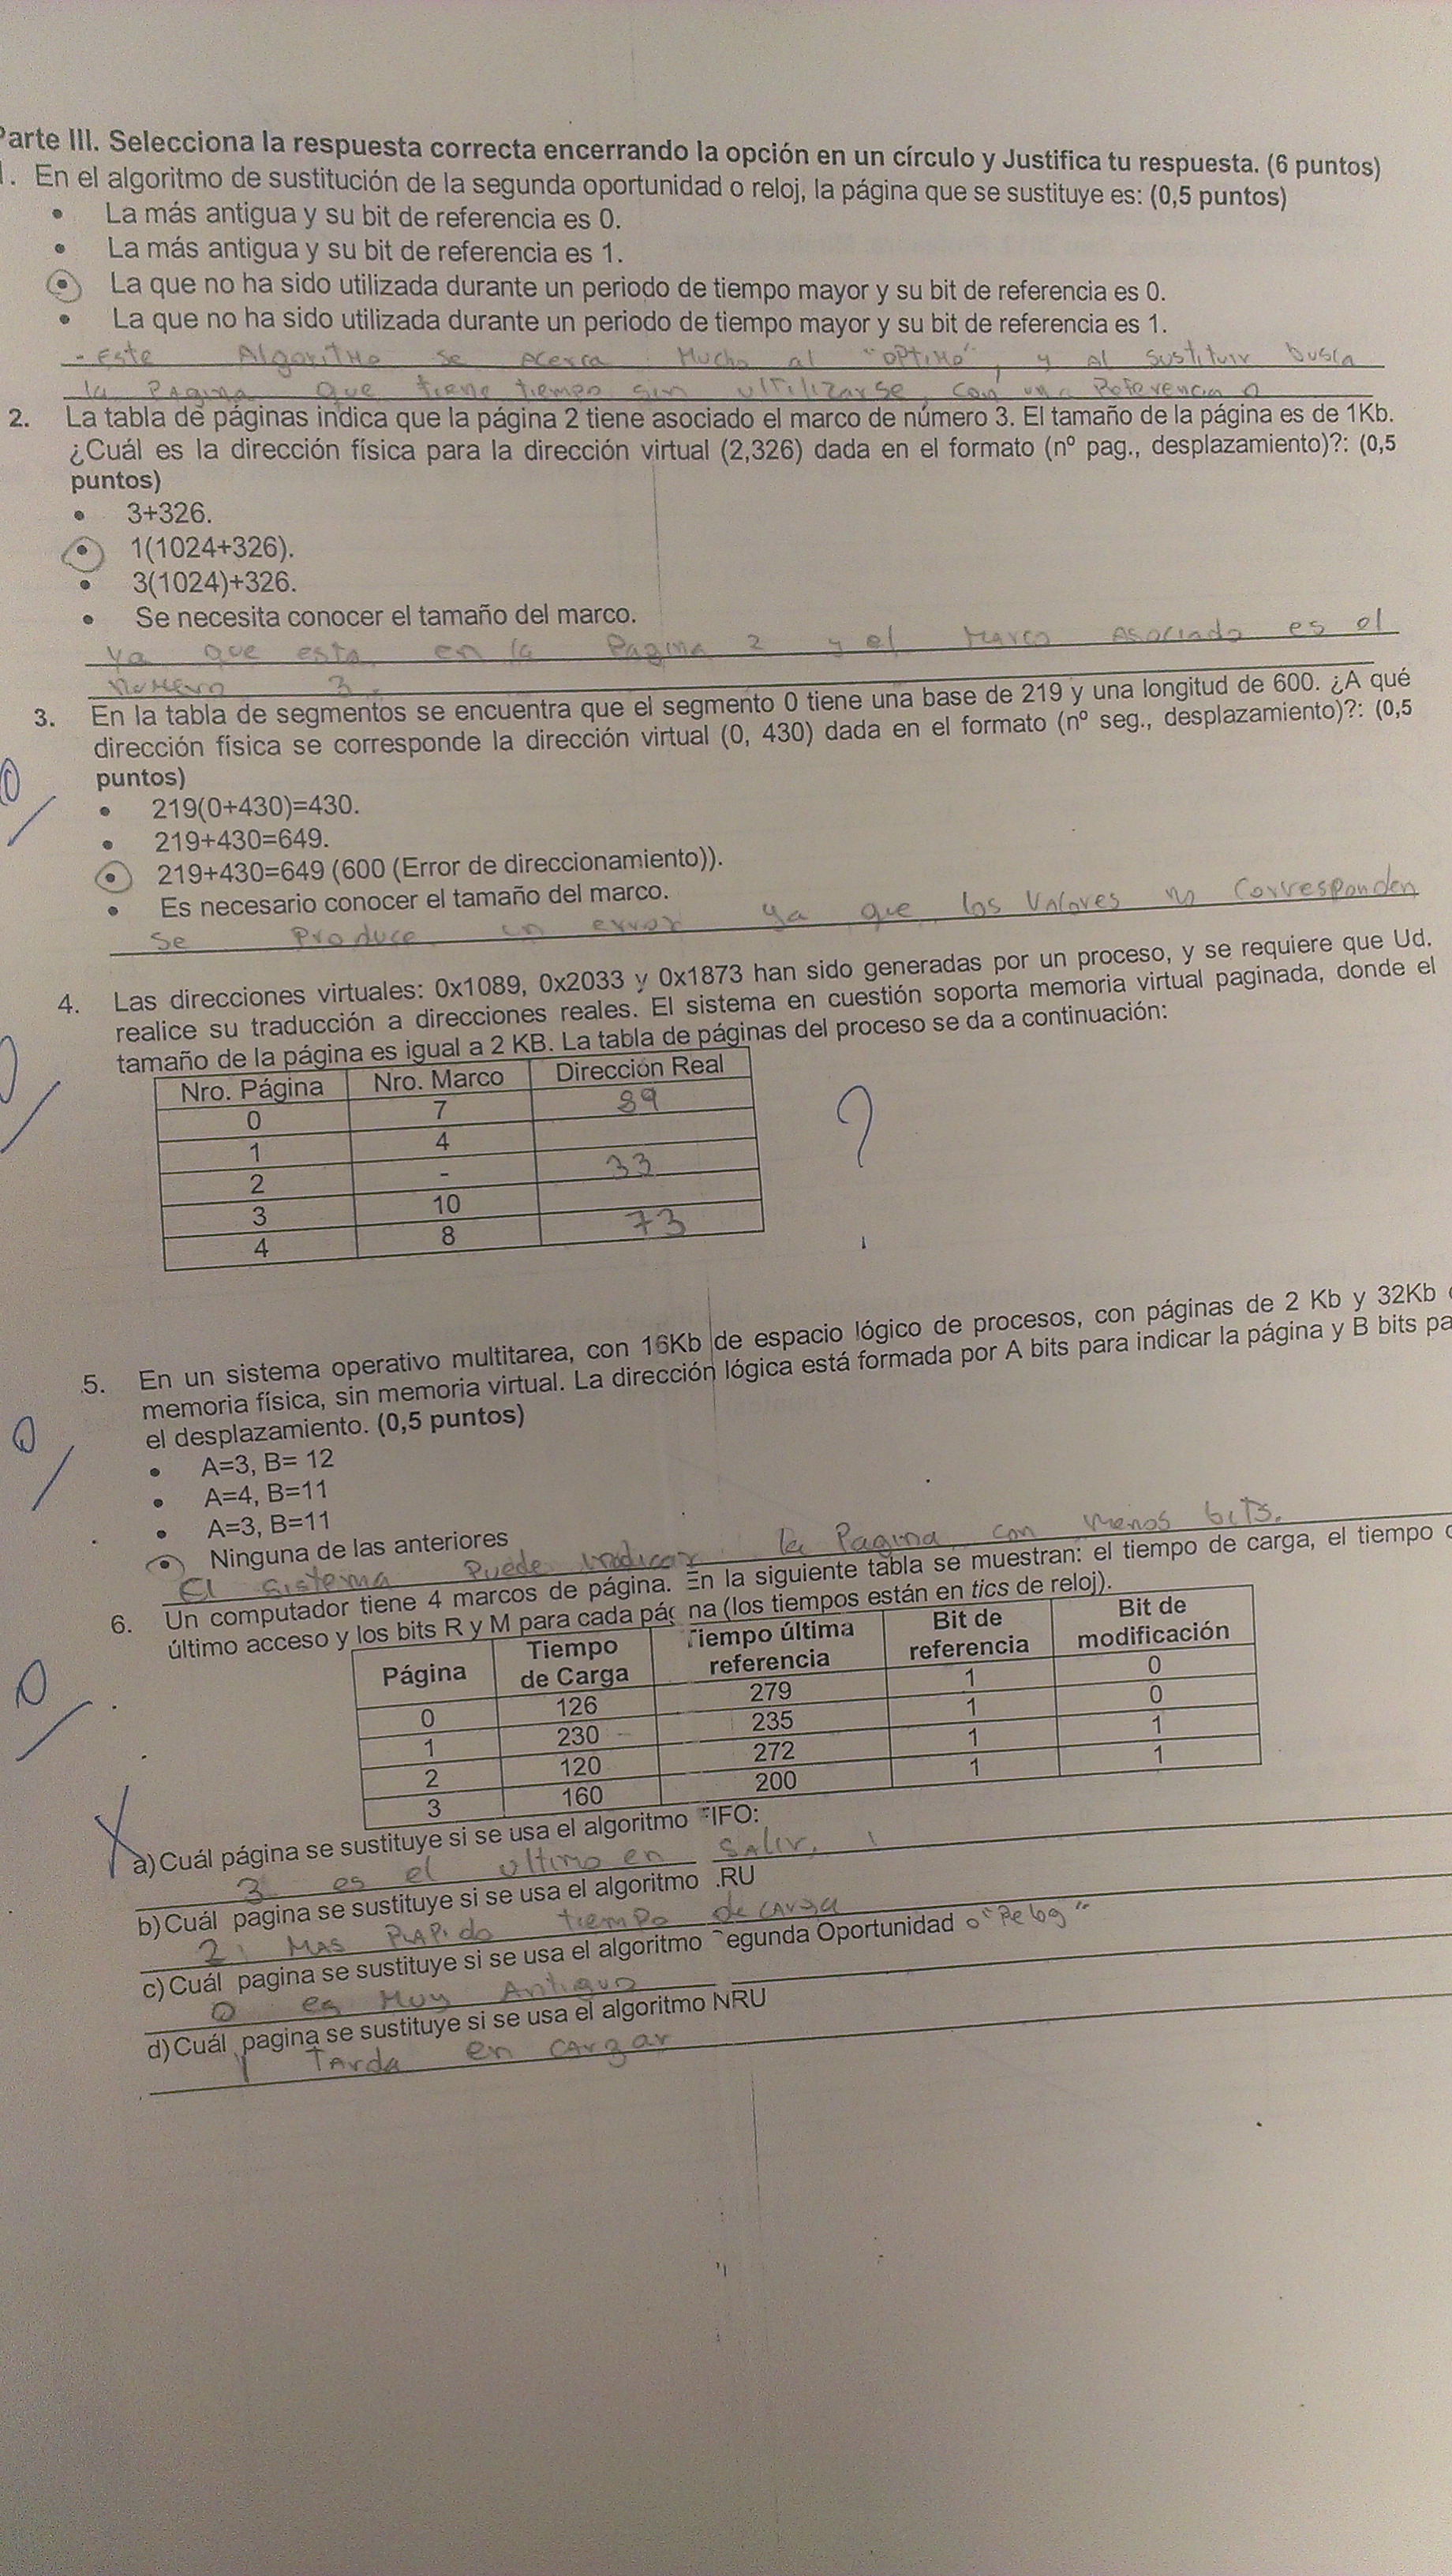 Parte III. Selecciona la respuesta correcta encerrando la opción en un círculo y Justifica tu respuesta. (6 puntos)
1. En el algoritmo de sustitución de la segunda oportunidad o reloj, la página que se sustituye es: (0,5 puntos)
• La más antigua y su bit de referencia es 0.
• La más antigua y su bit de referencia es 1.
• La que no ha sido utilizada durante un periodo de tiempo mayor y su bit de referencia es 0.
• La que no ha sido utilizada durante un periodo de tiempo mayor y su bit de referencia es 1.
- Este Algoritmo se acerca mucho al "optimo", y al sustituir busca
la pagina que tiene tiempo sin ultilizarse, con una Referencia 0
2. La tabla de páginas indica que la página 2 tiene asociado el marco de número 3. El tamaño de la página es de 1Kb.
¿Cuál es la dirección física para la dirección virtual (2,326) dada en el formato (nº pag., desplazamiento)?: (0,5
puntos)
• 3+326.
• 1(1024+326).
• 3(1024)+326.
• Se necesita conocer el tamaño del marco.
Ya que esta en la Pagina 2 y el Marco Asociado es el
numero 3.
3. En la tabla de segmentos se encuentra que el segmento 0 tiene una base de 219 y una longitud de 600. ¿A qué
dirección física se corresponde la dirección virtual (0, 430) dada en el formato (nº seg., desplazamiento)?: (0,5
puntos)
• 219(0+430)=430.
• 219+430=649.
• 219+430=649 (600 (Error de direccionamiento)).
• Es necesario conocer el tamaño del marco.
Se Produce un error ya que los Valores no Corresponden
4. Las direcciones virtuales: 0x1089, 0x2033 y 0x1873 han sido generadas por un proceso, y se requiere que Ud.
realice su traducción a direcciones reales. El sistema en cuestión soporta memoria virtual paginada, donde el
tamaño de la página es igual a 2 KB. La tabla de páginas del proceso se da a continuación:
Nro. Página Nro. Marco Dirección Real
0 7 89
1 4
2 - 33
3 10
4 8 73
?
5. En un sistema operativo multitarea, con 16Kb de espacio lógico de procesos, con páginas de 2 Kb y 32Kb
memoria física, sin memoria virtual. La dirección lógica está formada por A bits para indicar la página y B bits pa
el desplazamiento. (0,5 puntos)
• A=3, B= 12
• A=4, B=11
• A=3, B=11
• Ninguna de las anteriores
El sistema Puede indicar la Pagina con menos bits.
6. Un computador tiene 4 marcos de página. En la siguiente tabla se muestran: el tiempo de carga, el tiempo
último acceso y los bits R y M para cada pág na (los tiempos están en tics de reloj).
Página Tiempo de Carga Tiempo última referencia Bit de referencia Bit de modificación
0 126 279 1 0
1 230 235 1 0
2 120 272 1 1
3 160 200 1 1
a) Cuál página se sustituye si se usa el algoritmo FIFO:
3 es el ultimo en Salir,
b) Cuál pagina se sustituye si se usa el algoritmo LRU
2, Mas Rapido tiempo de carga
c) Cuál pagina se sustituye si se usa el algoritmo Segunda Oportunidad o "Reloj"
0 es Muy Antiguo
d) Cuál pagina se sustituye si se usa el algoritmo NRU
1 Tarda en cargar